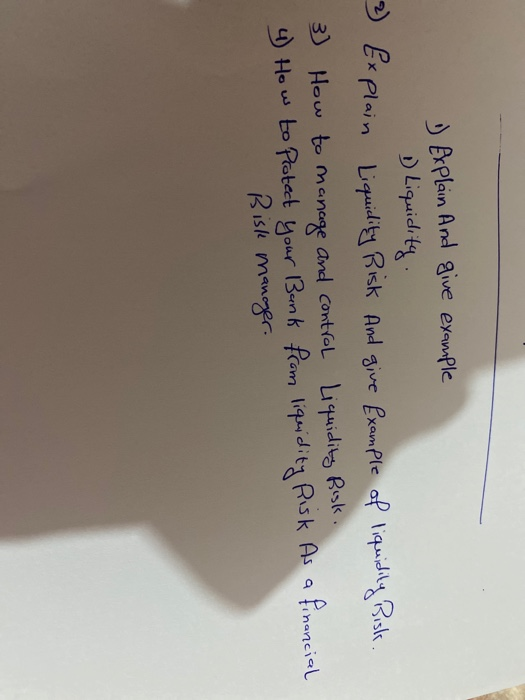 1) Explain And give example
1) Liquidity.
2) Explain Liquidity Risk And give Example of liquidity Risk.
3) How to manage and control Liquidity Risk.
4) How to Protect your Bank from liquidity Risk As a financial
Risk manager.